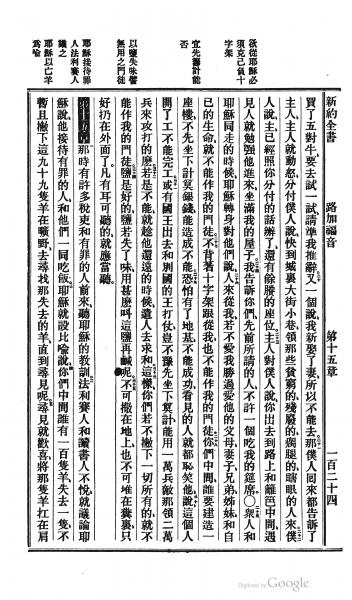 新約全書
路加福音
第十五章
一百二十四
欲從耶穌必
須克己負十
字架
宜先籌計能
否
以鹽失味譬
無用之門徒
耶穌接待罪
人法利賽人
議之
耶穌以亡羊
爲喻
買了五對牛要去試一試請準我推辭又一個說我新娶了妻所以不能去那僕人囘來都告訴了
主人主人就動怒分付僕人說快到城裏大街小巷領那些貧窮的殘廢的瘸腿的瞎眼的人來僕
人說主已經照你分付的話辦了還有餘賸的座位主人對僕人說你出去到路上和籬笆中間遇
見人就勉强他進來坐滿我的屋子我告訴你們先前所請的人不許一個吃我的筵席〇衆人和
耶穌同走的時候耶穌轉身對他們說人來從我若不愛我勝過愛他的父母妻子兄弟姊妹和自
己的生命就不能作我的門徒不背著十字架跟從我也不能作我的門徒你們中間誰要建造一
座樓不先坐下計算銀錢能造成不能恐怕有了地基不能成功看見的人就都恥笑他說這個人
開了工不能完工或有國王出去和別國的王打仗豈不籌先坐下算計能用一萬兵敵那領二萬
兵來攻打的麽若是不能就趁他還遠的時候遣人去求和這樣你們若不撇下一切所有的就不
能作我的門徒鹽是好的鹽若失了味用甚麽呌這鹽再鹹呢不可撒在地上也不可堆在糞裏只
好扔在外面了凡有耳可聽的就應當聽
第十五章那時有許多稅吏和有罪的人前來聽耶穌的教訓法利賽人和讀書人不悅就議論耶
穌說他接待有罪的人和他們一同吃飯耶穌就設比喻說你們中間誰有一百隻羊失去一隻不
暫且撇下這九十九隻羊在曠野去尋找那失去的羊直到尋見呢尋見就歡喜將那隻羊扛在肩
Digitized by Google